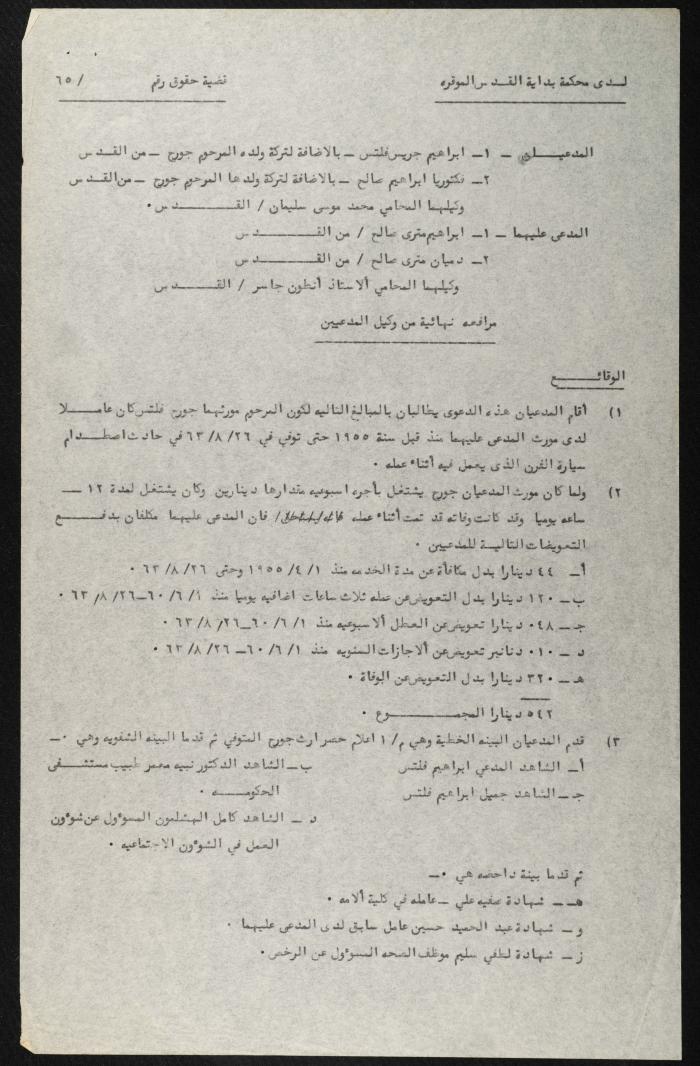 لدى محكمة بداية القدس الموقره قضية حقوق رقم / ٦٥
المدعيان – ١– ابراهيم جريس فلتس – بالاضافة لتركة ولده المرحوم جورج – من القدس
٢– فكتوريا ابراهيم صالح – بالاضافة لتركة ولدها المرحوم جورج – من القدس
وكيلهما المحامي محمد موسى سليمان / القدس ٠
المدعى عليهما – ١– ابراهيم متري صالح / من القدس
٢– دميان متري صالح / من القدس
وكيلهما المحامي ألاستاذ أنطون جاسر / القدس
مرافعه نهائية من وكيل المدعيين
الوقائع
١) أقام المدعيان هذه الدعوى يطالبان بالمبالغ التاليه لكون المرحوم مورثهما جورج فلتس كان عاملا
لدى مورث المدعى عليهما منذ قبل سنة ١٩٥٥ حتى توفي في ٦٣/٨/٢٦ في حادث اصطدام
سيارة الفرن الذي يعمل فيه أثناء عمله ٠
٢) ولما كان مورث المدعيان جورج يشتغل بأجره اسبوعيه مقدارها دينارين وكان يشتغل لمدة ١٢ –
ساعه يوميا وقد كانت وفاته قد تمت أثناء عمله / فان المدعى عليهما مكلفان بدفع
التعويضات التالية للمدعيين ٠
أ– ٤٤ دينارا بدل مكافأة عن مدة الخدمه منذ ١٩٥٥/٤/١ وحتى ٦٣/٨/٢٦ ٠
ب– ١٢٠ دينارا بدل التعويض عن عمله ثلاث ساعات اضافيه يوميا منذ ٦٠/٦/١–٦٣/٨/٢٦ ٠
جـ– ٠٤٨ دينارا تعويض عن العطل ألاسبوعيه منذ ٦٠/٦/١–٦٣/٨/٢٦ ٠
د – ٠١٠ دنانير تعويض عن ألاجازات السنويه منذ ٦٠/٦/١– ٦٣/٨/٢٦ ٠
هـ– ٣٢٠ دينارا بدل التعويض عن الوفاة ٠
٥٤٢ دينارا المجموع ٠
٣) قدم المدعيان البينه الخطية وهي م/١ اعلام حصر ارث جورج المتوفي ثم قدما البينه الشفويه وهي ٠–
أ– الشاهد المدعي ابراهيم فلتس ب– الشاهد الدكتور نبيه معمر طبيب مستشفى
جـ– الشاهد جميل ابراهيم فلتس الحكومه ٠
د – الشاهد كامل المسؤول عن شؤون
العمل في الشؤون الاجتماعيه ٠
ثم قدما بينة داحضه هي ٠–
هـ– شهادة صفيه علي – عامله في كلية ألامه ٠
و – شهادة عبد الحميد حسين عامل سابق لدى المدعى عليهما ٠
ز – شهادة لطفي سليم موظف الصحه المسؤول عن الرخص ٠